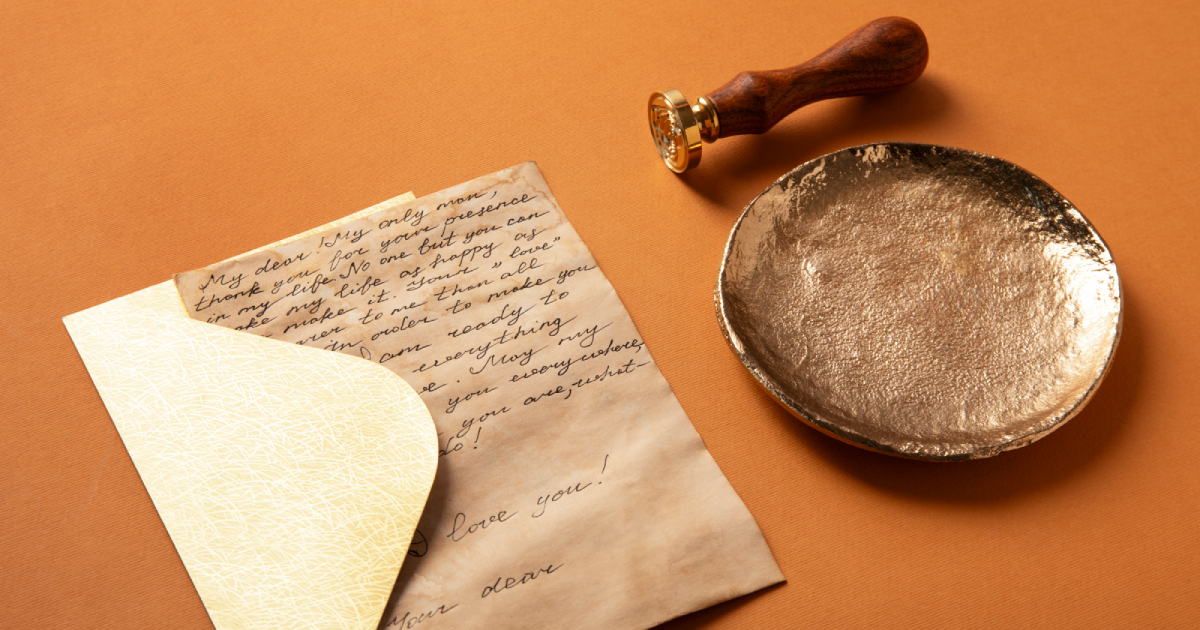 My dear! My only man,
thank you for your presence
in my life. No one but you can
make my life as happy as
make it. Your "love"
to me than all
in order to make you
I am ready to
everything
. May my
you everywhere,
you are, what-
do!
I love you!
Your dear